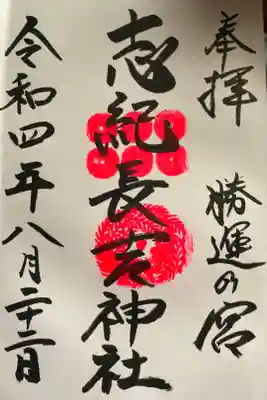 奉拝
勝運の宮
志紀長吉神社
令和四年八月二十二日